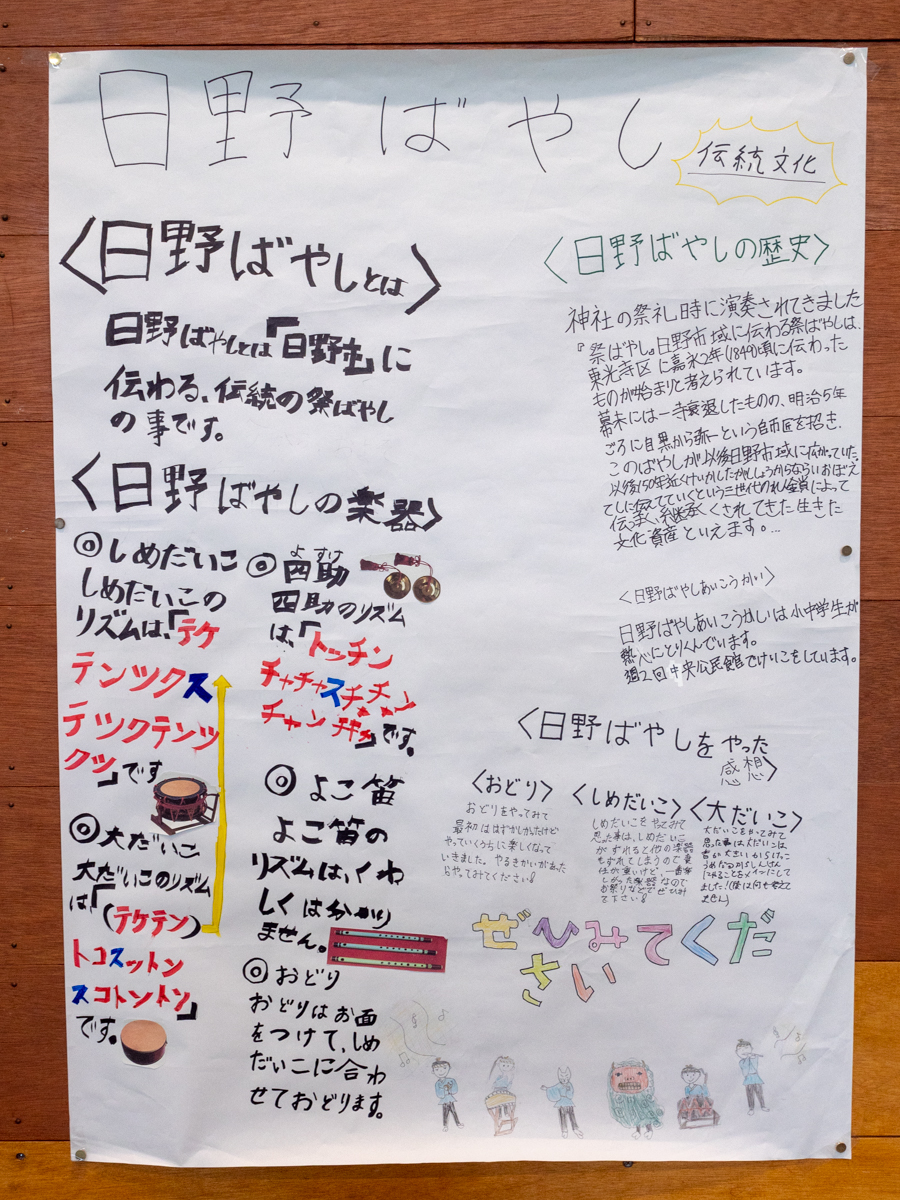 日野ばやし
伝統文化
〈日野ばやしとは〉
日野ばやしとは「日野市」に
伝わる、伝統の祭ばやし
の事です。
〈日野ばやしの楽器〉
◎しめだいこ
しめだいこの
リズムは、「テケ
テンツクス
テツクテンツ
クツ」です
◎大だいこ
大だいこのリズム
は「(テケテン)
トコスットン
スコトントン」
です。
◎四助
よすけ
四助のリズム
は、「トッチン
チャチャスチ
チャン
です。
◎よこ笛
よこ笛の
リズムは、くわ
しくは分かり
ません。
◎おどり
おどりはお面
をつけて、しめ
だいこに合わ
せておどります。
〈日野ばやしの歴史〉
神社の祭礼時に演奏されてきました
『祭ばやし。日野市域に伝わる祭ばやしは、
東光寺区に嘉永2年(1849)頃に伝わった
ものが始まりと考えられています。
幕末には一寺衰退したものの、明治5年
ごろに目黒から弥一という師匠を招き、
このばやしが以後日野市域に広がっていた。
以後150年近くけいかしたが
てしに伝えていくという
伝承、継承くされてきた生きた
文化資産といえます。…
〈日野ばやしあいこうかい〉
日野ばやしあいこうかいは小中学生が
熱心にとりくんでいます。
週2回中央公民館でけいこをしています。
〈日野ばやしをやった
感想〉
〈おどり〉
おどりをやってみて
最初ははずかしかったけど
やっていくうちに楽しくなって
いきました。やるきかいがあった
らやってみてください!
〈しめだいこ〉
しめだいこをやってみて
思った事は、しめだいこ
がずれると他の楽器
もずれてしまうので責
任が重いけど、一番楽
しかった楽器なので
お祭りなどでぜひみて
て下さい!
〈大だいこ〉
大だいこをやってみて
思った事は大だいこは
音が大きいからけっこ
ちゅることをメインにして
ました!(後は何も考えて
ません)
ぜひみてくだ
さい